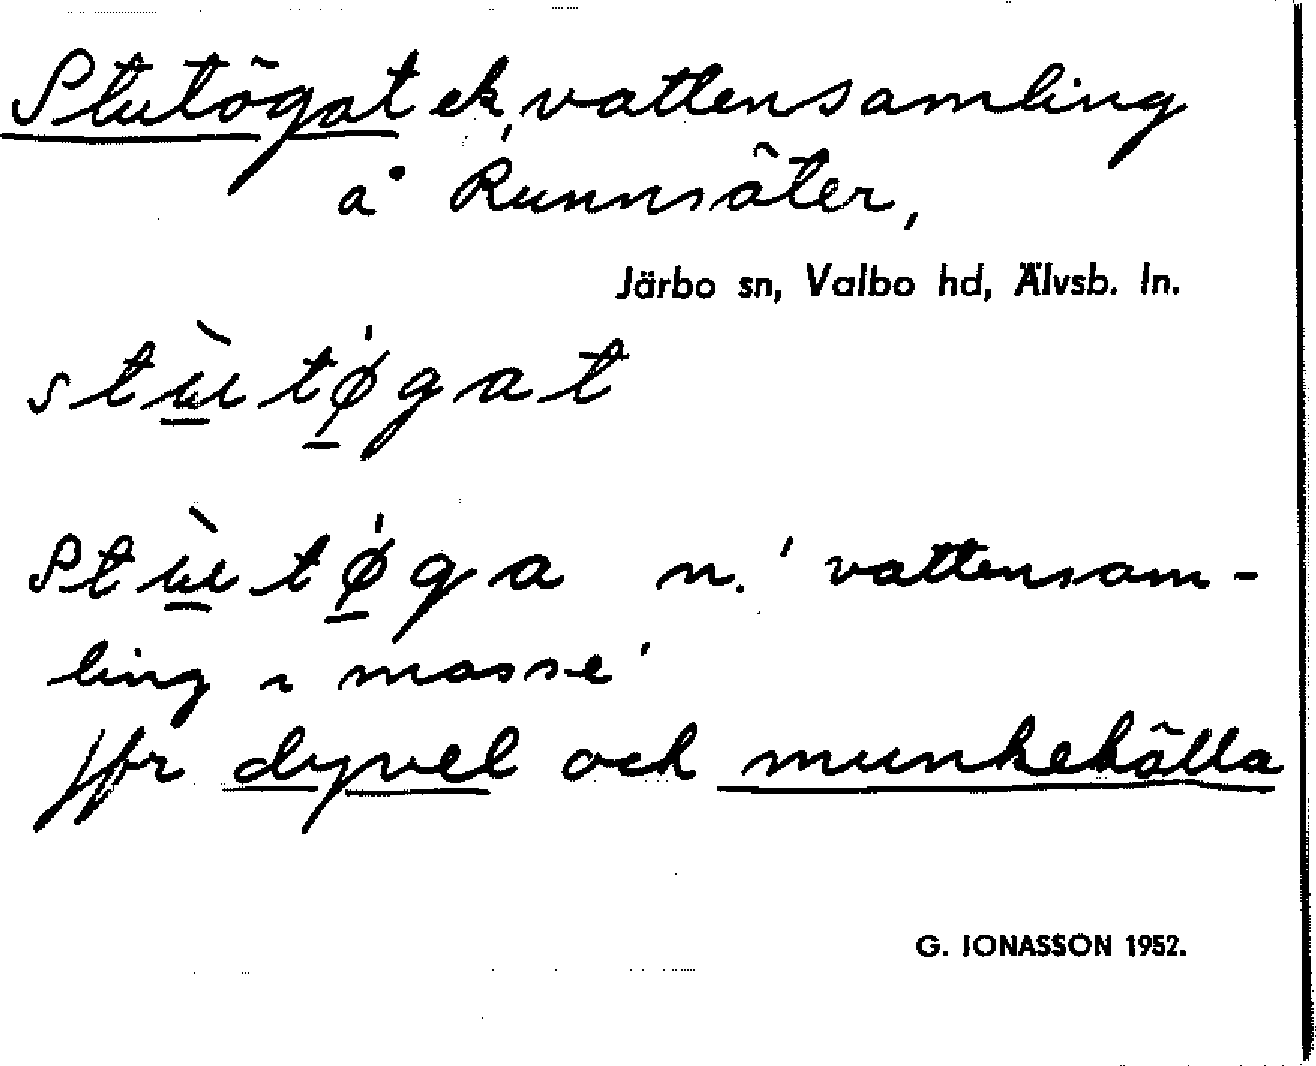 Stutögat ek, vattensamling
å Runnsäter,
Järbo sn, Valbo hd, Älvsb. ln.
stù̲tǿ̲gat
Stù̲tǿ̲ga n. 'vattensam-
ling i mosse'
jfr dyvel och munkekälla
G. JONASSON 1952.